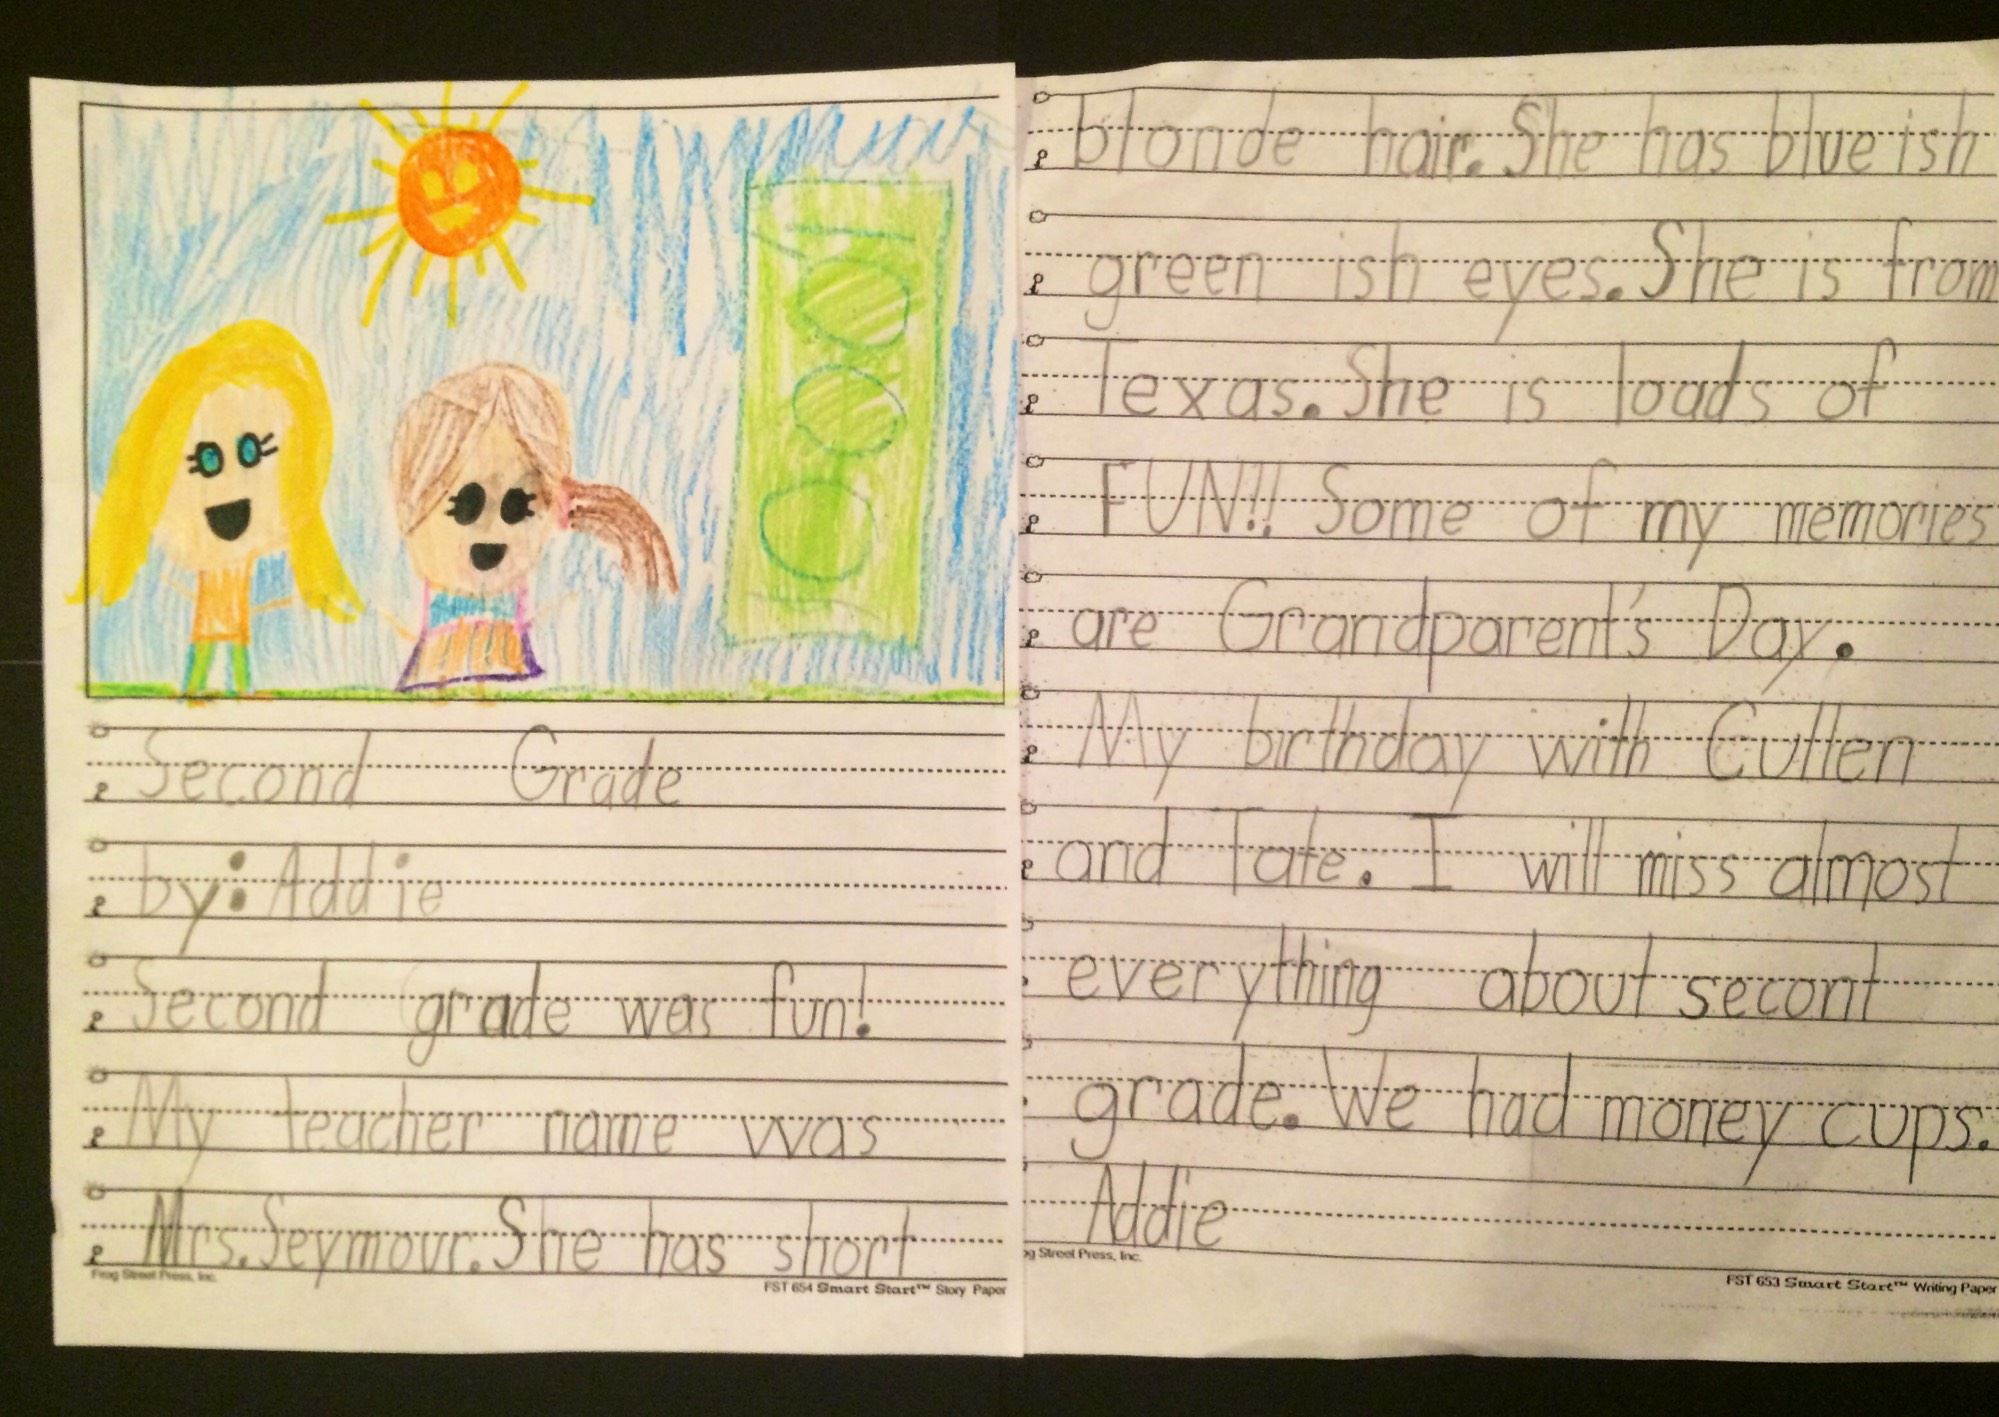 Second Grade
by: Addie
Second grade was fun!
My teacher name was
Mrs. Seymour. She has short
Frog Street Press, Inc.
FST 654 Smart Start™ Story Paper
blonde hair. She has blue ish
green ish eyes. She is from
Texas. She is loads of
FUN!! Some of my memories
are Grandparent's Day.
My birthday with Cullen
and Tate. I will miss almost
everything about secont
grade. We had money cups.
Addie
og Street Press, Inc.
FST 653 Smart Start™ Writing Paper